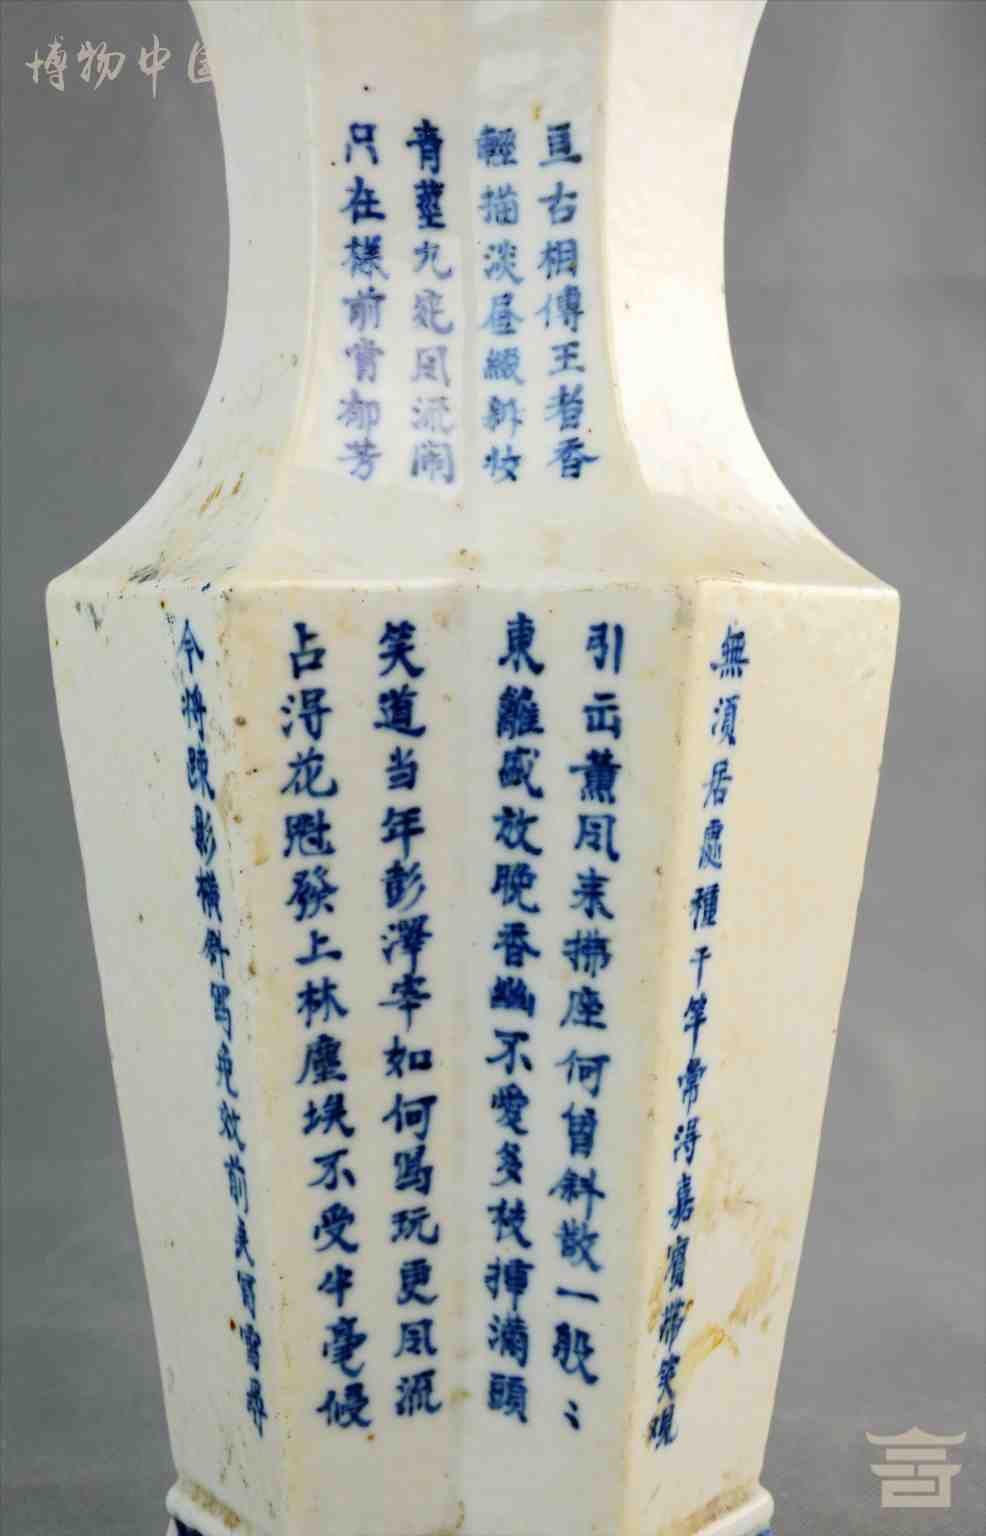 博物中国
亘古相傳王者香
輕描淡昼綴斜妆
青莖九花风流闹
只在檨前賞郁芳
無須居處種千竿常淂嘉賓带笑观
引出薰风来拂座何曾斜散一般〻
東離盛放晚香幽不愛多枝揷滿頭
笑道当年彭澤宰如何写玩更风流
占淂花魁發上林塵埃不受半毫侵
今将疎影横斜写免效前夫冒雪尋